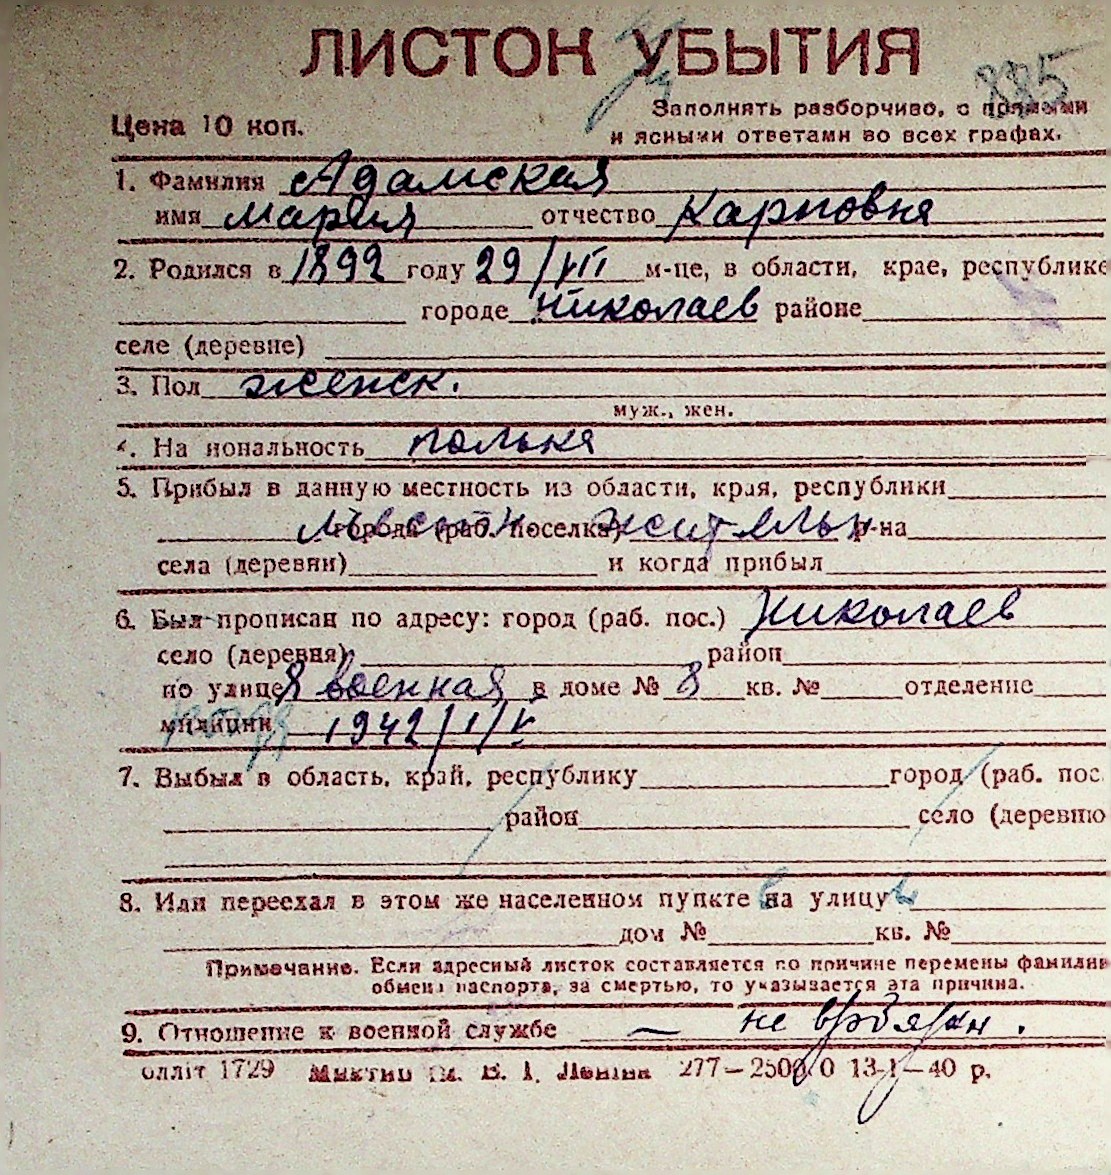 ЛИСТОК УБЫТИЯ
885
Цена 10 коп.
Заполнять разборчиво, с прямыми
и ясными ответами во всех графах.
1. Фамилия Адамская
имя Мария отчество Карповна
2. Родился в 1892 году 29/VII м-це, в области, крае, республике
городе Николаев районе
селе (деревне)
3. Пол женск.
муж., жен.
4. На иональность полька
5. Прибыл в данную местность из области, края, республики
города (раб. поселка) р-на
села (деревни) и когда прибыл
6. Был прописан по адресу: город (раб. пос.) Николаев
село (деревня) район
по улице 8 военная в доме № 8 кв. № отделение
милиции 1942/I/V
7. Выбыл в область, край, республику город (раб. пос.
район село (деревню
8. Или переехал в этом же населенном пункте на улицу
дом № кв. №
Примечание. Если адресный листок составляется по причине перемены фамилии
обмена паспорта, за смертью, то указывается эта причина.
9. Отношение к военной службе — не
1729 В. І. Леніна 277—2500 0 13-I—40 р.